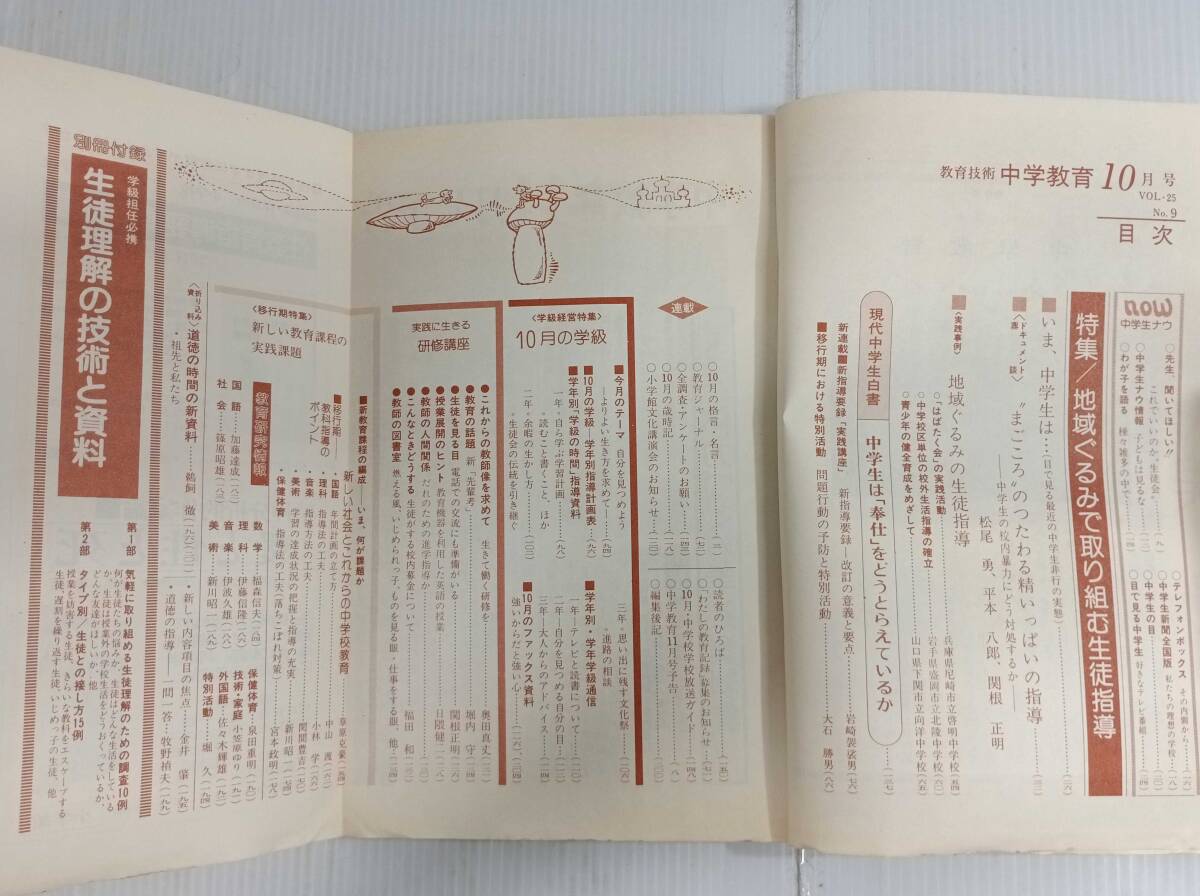 教育技術 中学教育 10月号
VOL・25
No.9
目次
now
中学生ナウ
○先生、聞いてほしい!!
これでいいのか、生徒会…
○中学生ナウ情報 子どもは見るな
○わが子を語る 種々雑多の中で…
○テレフォンボックス その内側から…
○中学生新聞全国版 私たちの理想の学校…
○中学生の目
○目で見る中学生 好きなテレビ番組…
特集/地域ぐるみで取り組む生徒指導
■いま、中学生は…(目で見る最近の中学生非行の実態)
■〈ドキュメント・鼎談〉“まごころ”のつたわる精いっぱいの指導
――中学生の校内暴力にどう対処するか――
松尾 勇、平本 八郎、関根 正明
■〈実践事例〉地域ぐるみの生徒指導
○「はばたく会」の実践活動
兵庫県尼崎市立啓明中学校
○中学校区単位の校外生活指導の確立
岩手県盛岡市立北陵中学校
○青少年の健全育成をめざして
山口県下関市立向洋中学校
現代中学生白書 中学生は「奉仕」をどうとらえているか
新連載■新指導要録「実践講座」 新指導要録―改訂の意義と要点
岩崎袈裟男
■移行期における特別活動 問題行動の予防と特別活動
大石 勝男
連載
○10月の格言・名言
○教育ジャーナル
○全調査・アンケートのお願い
○10月の歳時記
○小学館文化講演会のお知らせ
○読者のひろば
○「わたしの教育記録」募集のお知らせ
○10月・中学校学校放送ガイド
○中学教育11月号予告
○編集後記
〈学級経営特集〉
10月の学級
■今月のテーマ 自分を見つめよう
―よりよい生き方を求めて―
■10月の学級―学年別指導計画表
■学年別「学級の時間」指導資料
一年・自ら学ぶ学習計画
読むこと書くこと、ほか
二年・余暇の生かし方
生徒会の伝統を引き継ぐ
三年・思い出に残す文化祭
進路の相談
■学年別・学年学級通信
一年―テレビと読書について
二年―自分を見つめる自分の目
三年―大人からのアドバイス
■10月のファックス資料
強いからだと強い心
実践に生きる
研修講座
●これからの教師像を求めて 生きて働く研修を
奥田真丈
●教育の話題 新「先輩考」
堀内 守
●生徒を見る目 電話での交流にも準備がいる
関根正明
●授業展開のヒント 教育機器を利用した英語の授業
日隈健二
●教師の人間関係 だれのための進学指導か
●こんなときどうする 生徒がする校内募金について
福田 和
●教師の図書室 燃える風、いじめられっ子、ものを見る眼・仕事をする眼、他
〈移行期特集〉
新しい教育課程の
実践課題
■新教育課程の編成――いま、何が課題か
新しい社会とこれからの中学校教育
草原克豪
■移行期 教科指導のポイント
・国語 年間計画の立て方
中山 渡
・理科 指導法の工夫
小林 学
・音楽 指導方法の工夫
関間豊吉
・美術 学習の達成状況の把握と指導の充実
新川昭一
・保健体育 指導法の工夫「落ちこぼれ対策」
宮本政明
教育研究情報
国語…加藤達成
社会…篠原昭雄
数学 福森信夫
理科 伊藤信隆
音楽 伊波久雄
美術 新川昭一
保健体育…泉田重明
技術・家庭 小笠原ゆり
外国語…佐々木輝雄
特別活動…堀 久
〈折り込み資料〉道徳の時間の新資料
・祖先と私たち
鵜飼 徹
・新しい内容項目の焦点
金井 肇
・道徳の指導―一問一答
牧野禎夫
別冊付録
学級担任必携
生徒理解の技術と資料
第1部
気軽に取り組める生徒理解のための調査10例
何が生徒たちの悩みか、生徒はどんな生活をしているか、生徒は授業外の学校生活をどうおくっているか、どんな友達がほしいか、他
第2部
タイプ別/生徒との接し方15例
授業を妨害する生徒、きらいな教科をエスケープする生徒、遅刻を繰り返す生徒、いじめっ子の生徒、他